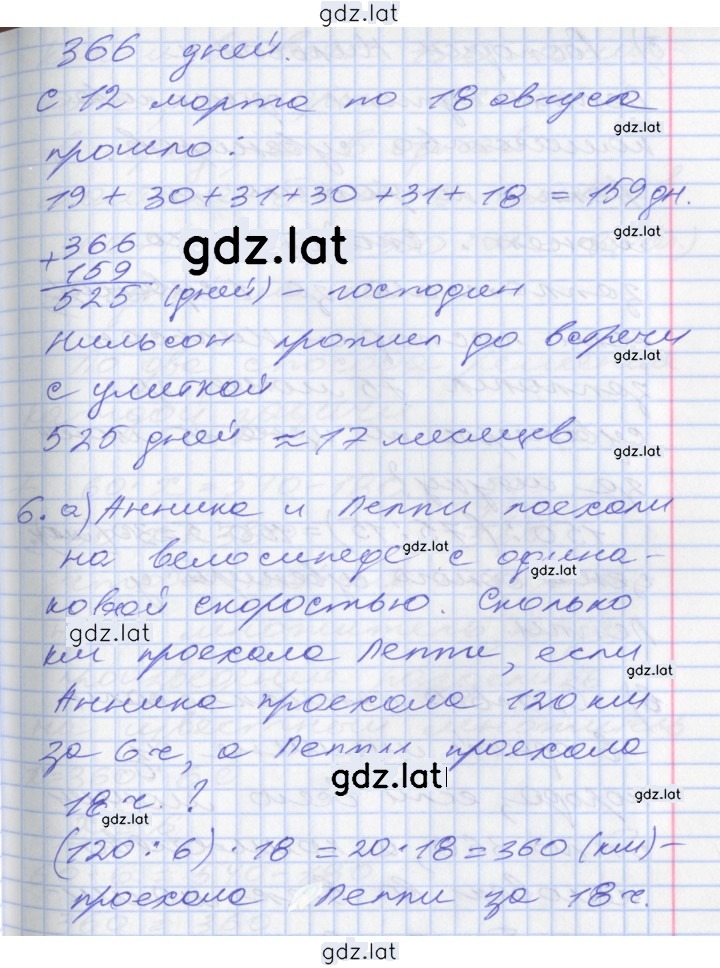 gdz.lat
366 дней.
с 12 марта по 18 августа
gdz.lat
прошло:
19 + 30 + 31 + 30 + 31 + 18 = 159 дн.
gdz.lat
gdz.lat
+ 366
159
525 (дней) – господин
Нильсон прожил до встречи
gdz.lat
с улиткой
525 дней ≈ 17 месяцев
gdz.lat
6. а) Анника и Пеппи поехали
на велосипеде с одина-
gdz.lat
gdz.lat
ковой скоростью. Сколько
gdz.lat
км проехала Пеппи, если
gdz.lat
Анника проехала 120 км
за 6 ч, а Пеппи проехала
gdz.lat
gdz.lat
18 ч. ?
gdz.lat
(120 : 6) · 18 = 20 · 18 = 360 (км) –
проехала Пеппи за 18 ч.
gdz.lat